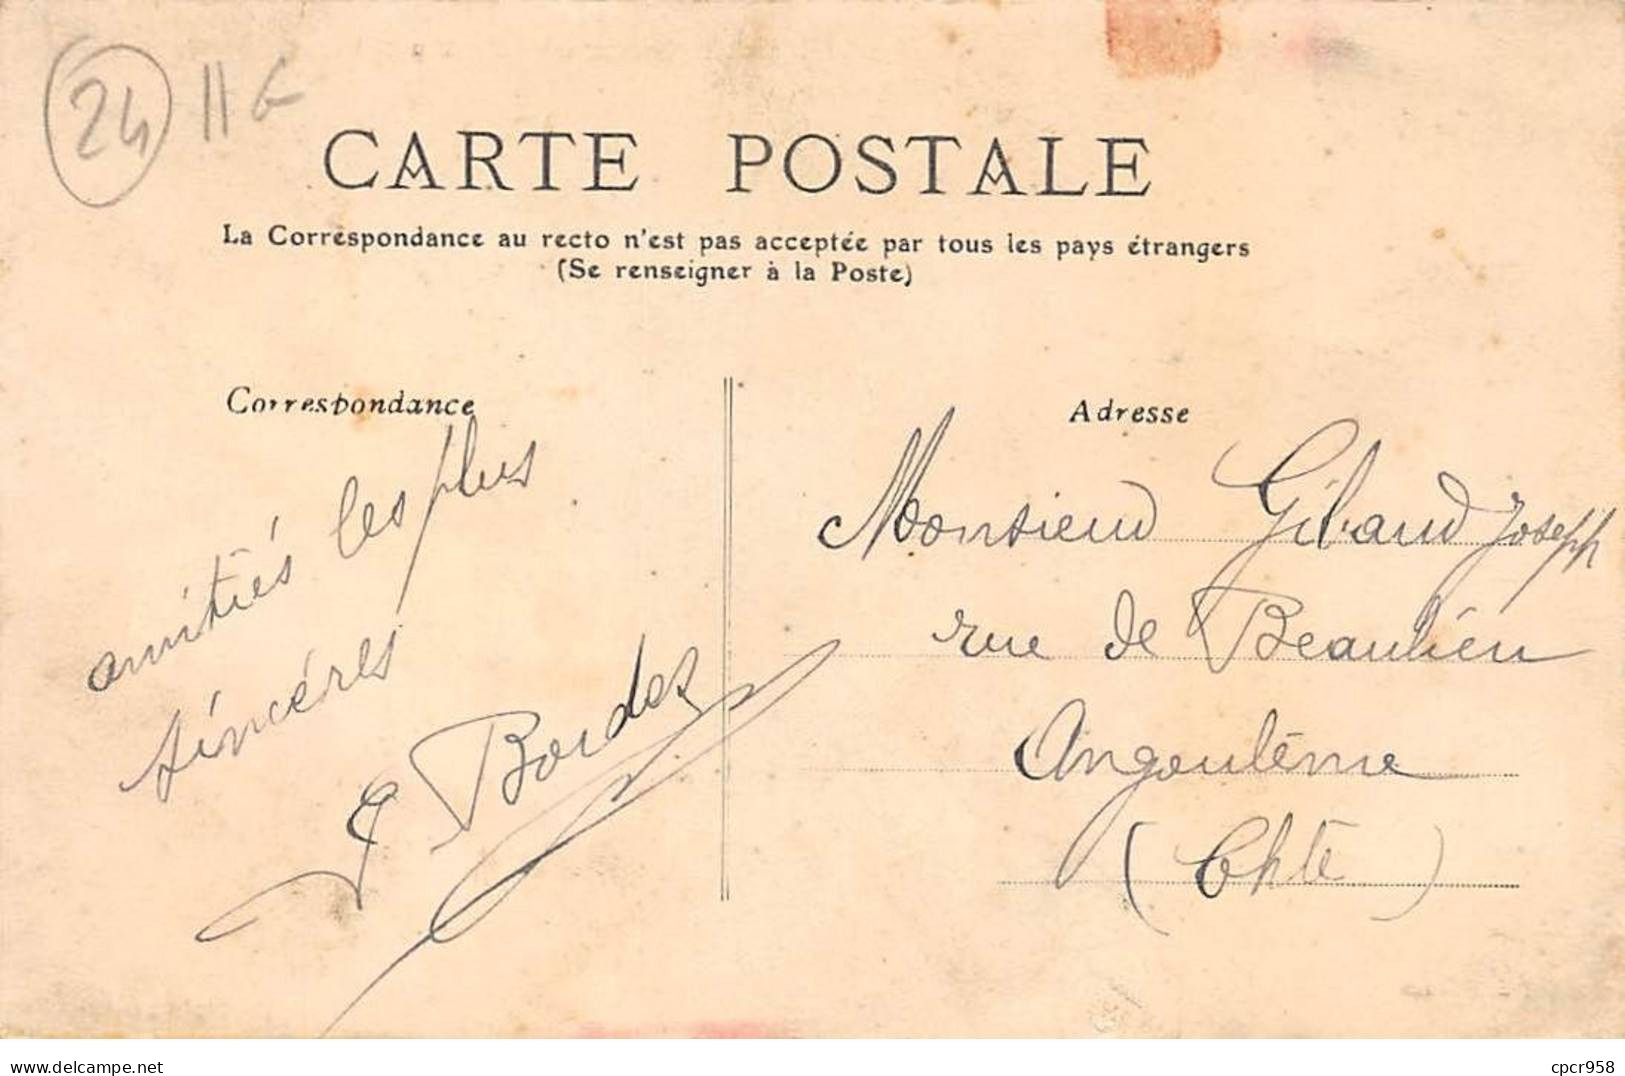 24 11 G
CARTE POSTALE
La Correspondance au recto n'est pas acceptée par tous les pays étrangers
(Se renseigner à la Poste)
Correspondance
amitiés les plus
sincéres
Bordes
Adresse
Monsieur Gibaud Joseph
rue de Beaulieu
Angoulême
(Chte)
Delcampe.net
cpcr958